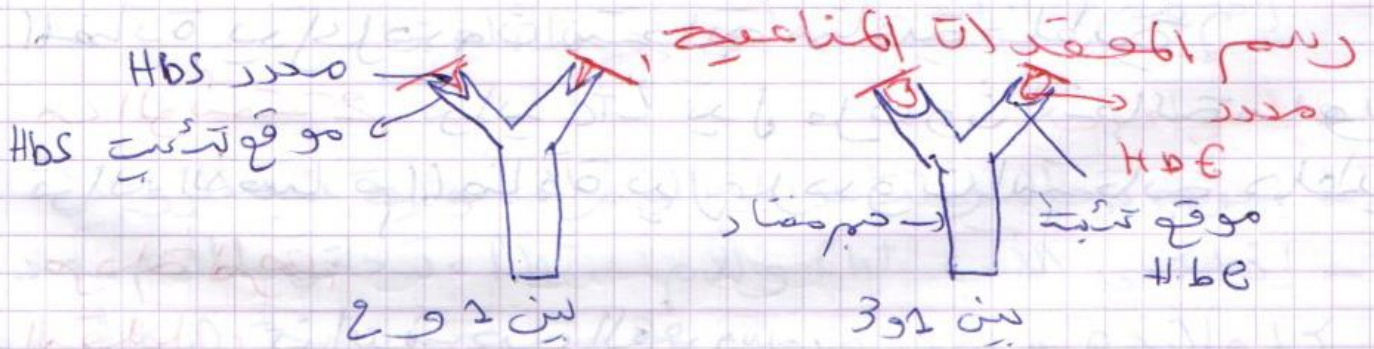 رسم المعقدات المناعية
محدد HbS
موقع تثبيت HbS
بين 1 و 2
محدد
HbE
موقع تثبيت
Hbe
جسم مضاد
بين 1 و 3